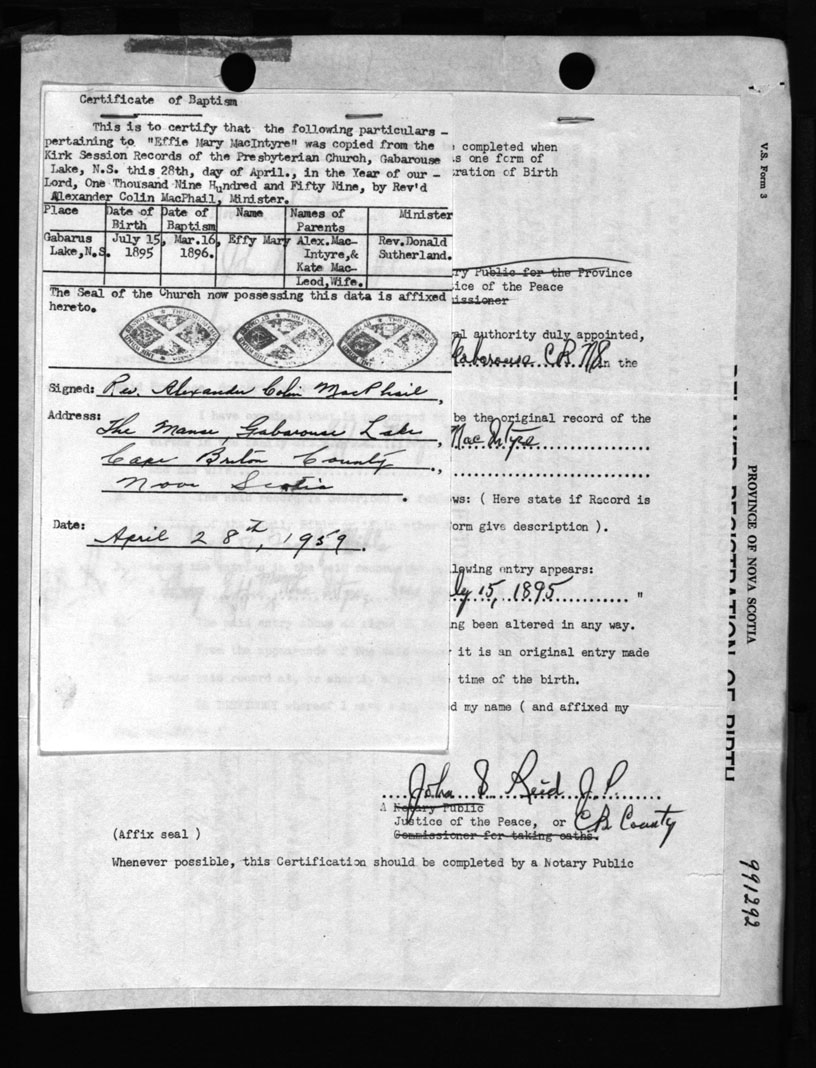 Certificate of Baptism
This is to certify that the following particulars -
pertaining to "Effie Mary MacIntyre" was copied from the
Kirk Session Records of the Presbyterian Church, Gabarouse
Lake, N.S. this 28th, day of April., in the Year of our -
Lord, One Thousand Nine Hundred and Fifty Nine, by Rev'd
Alexander Colin MacPhail, Minister.
Place Date of Birth Date of Baptism Name Names of Parents Minister
Gabarus Lake,N.S. July 15, 1895 Mar.16, 1896. Effy Mary Alex.Mac-Intyre,& Kate Mac-Leod,Wife. Rev.Donald Sutherland.
The Seal of the Church now possessing this data is affixed
hereto.
Signed: Rev. Alexander Colin MacPhail,
Address: The Manse, Gabarouse Lake,
Cape Breton County.,
Nova Scotia.
Date: April 28th, 1959.
completed when
s one form of
ration of Birth
ry Public for the Province
ice of the Peace
issioner
al authority duly appointed,
Gabarouse C.B. N.S. in the
be the original record of the
MacIntyre
ws: ( Here state if Record is
orm give description ).
lowing entry appears:
ly 15, 1895 "
ng been altered in any way.
it is an original entry made
time of the birth.
d my name ( and affixed my
John S Reid J.P.
A Notary Public
Justice of the Peace, or C.B. County
Commissioner for taking oaths.
(Affix seal )
Whenever possible, this Certification should be completed by a Notary Public
V.S. Form 3
PROVINCE OF NOVA SCOTIA
REGISTRATION OF BIRTH
991292